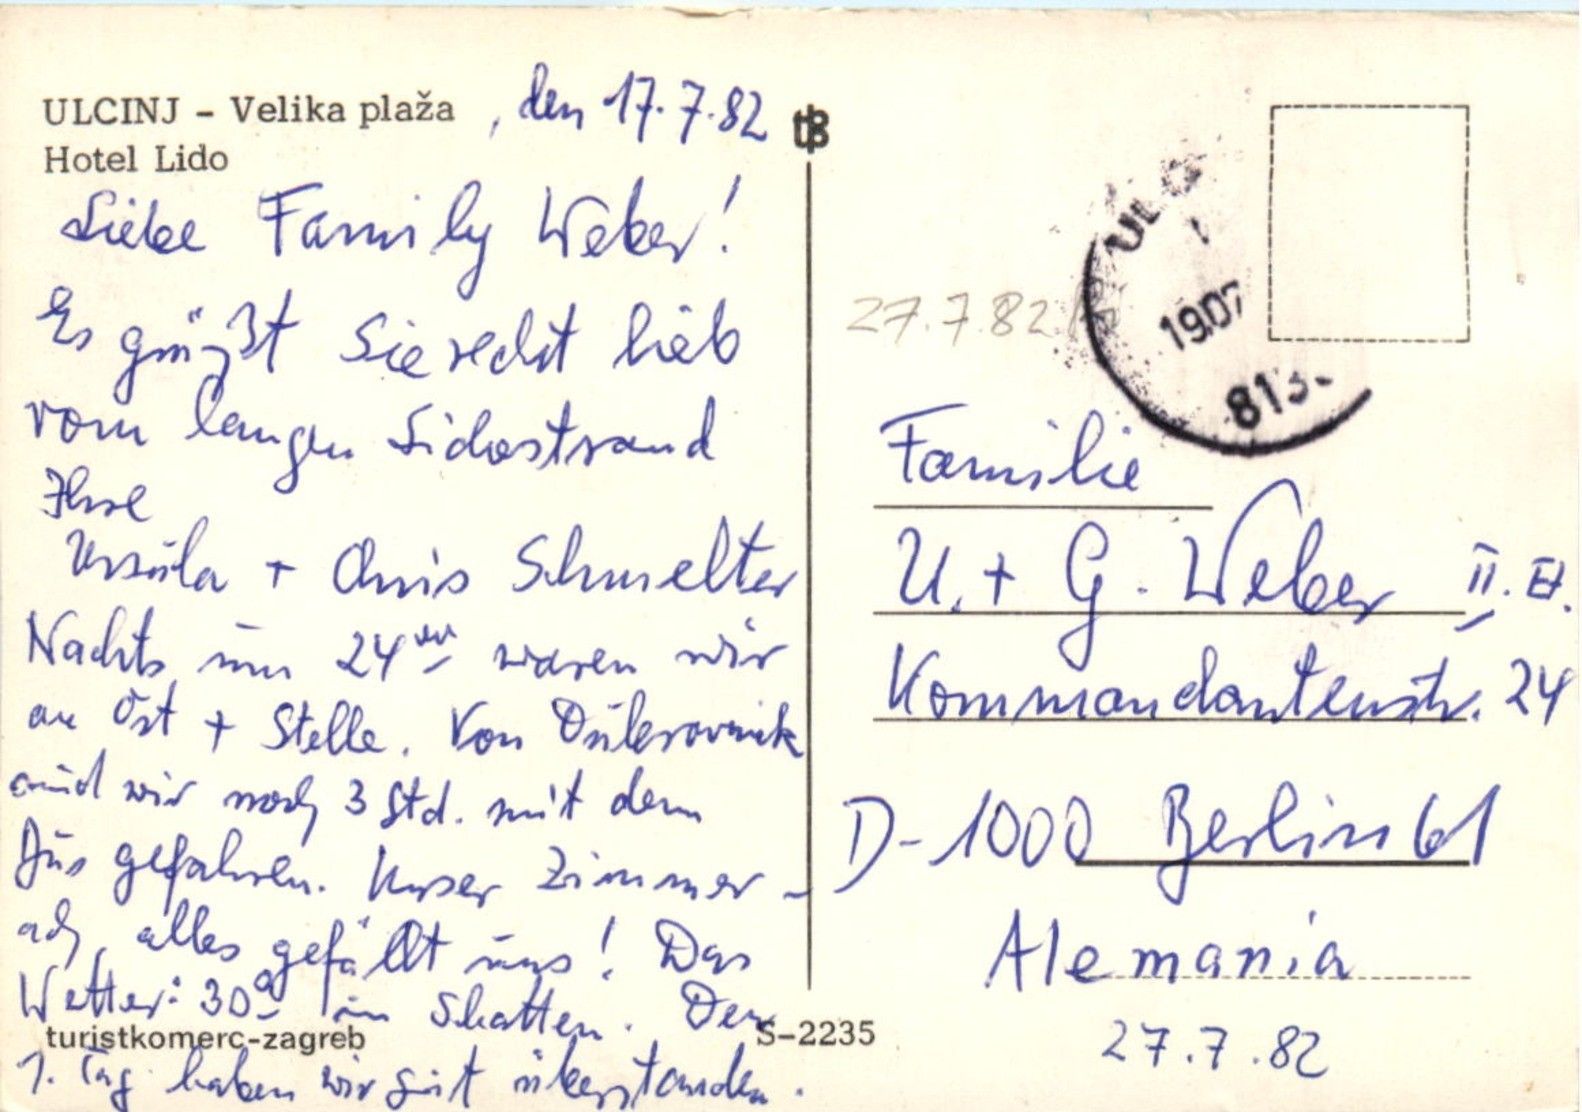 ULCINJ – Velika plaža , den 17.7.82
Hotel Lido
Liebe Family Weber!
Es grüßt Sie recht lieb
vom langen Lidostrand
Ihre
Ursula + Chris Schmelter
Nachts um 24 waren wir
an Ort + Stelle. Von Dubrovnik
sind wir noch 3 Std. mit dem
Bus gefahren. Unser Zimmer –
ach, alles gefällt uns! Das
Wetter: 30° im Schatten. Den
1. Tag haben wir gut überstanden.
turistkomerc-zagreb
S-2235
27.7.82
1907
813
Familie
U. + G. Weber II. Et.
Kommandantenstr. 24
D-1000 Berlin 61
Alemania
27.7.82